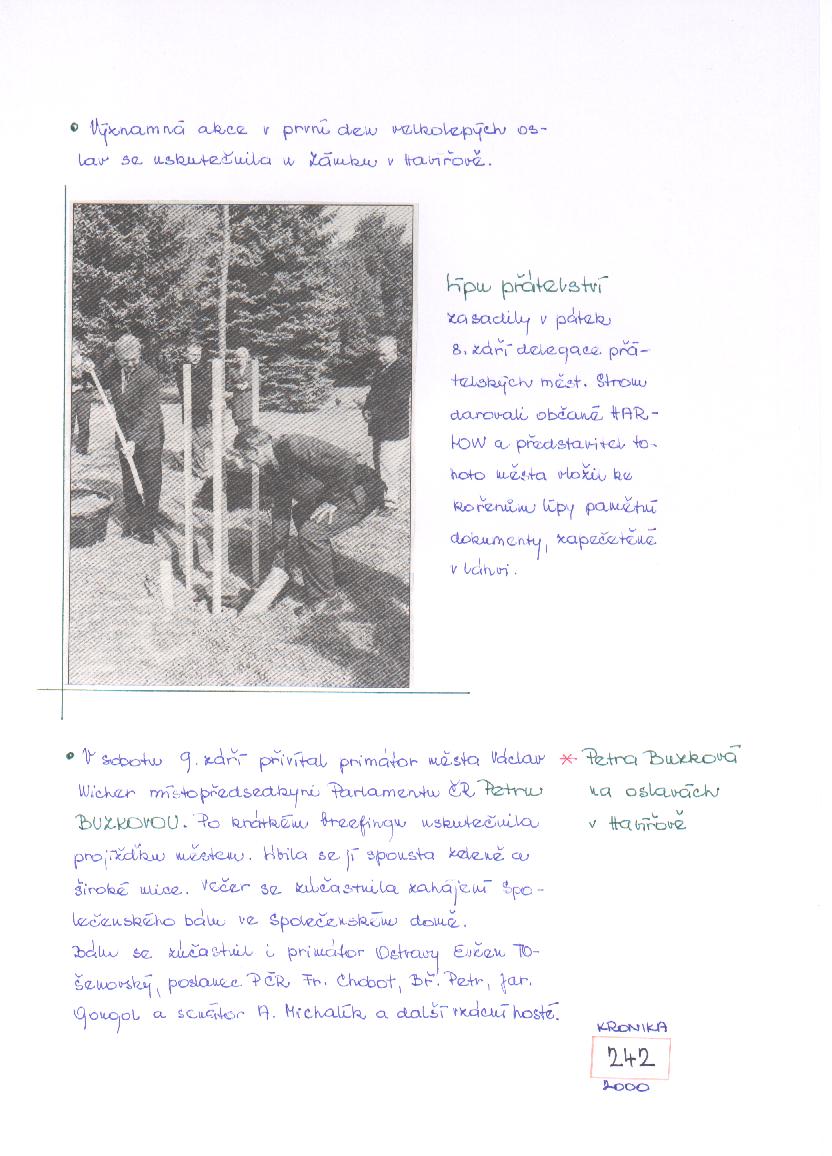 • Významná akce v první den velkolepých os-
lav se uskutečnila u zámku v Havířově.
Lípu přátelství
zasadily v pátek
8. září delegace přá-
telských měst. Strom
darovali občané HAR-
LOW a představitel to-
hoto města vložil ke
kořenům lípy pamětní
dokumenty, zapečetěné
v láhvi.
• V sobotu 9. září přivítal primátor města Václav
Wicher místopředsedkyni Parlamentu ČR Petru
BUZKOVOU. Po krátkém breefingu uskutečnila
projížďku městem. Líbila se jí spousta zeleně a
široké ulice. Večer se zúčastnila zahájení Spo-
lečenského bálu ve Společenském domě.
Bálu se zúčastnil i primátor Ostravy Evžen To-
šenovský, poslanec PČR Fr. Chobot, Bř. Petr, Jar.
Gongol a senátor A. Michalík a další vzácní hosté.
* Petra Buzková
na oslavách
v Havířově
KRONIKA
242
2000